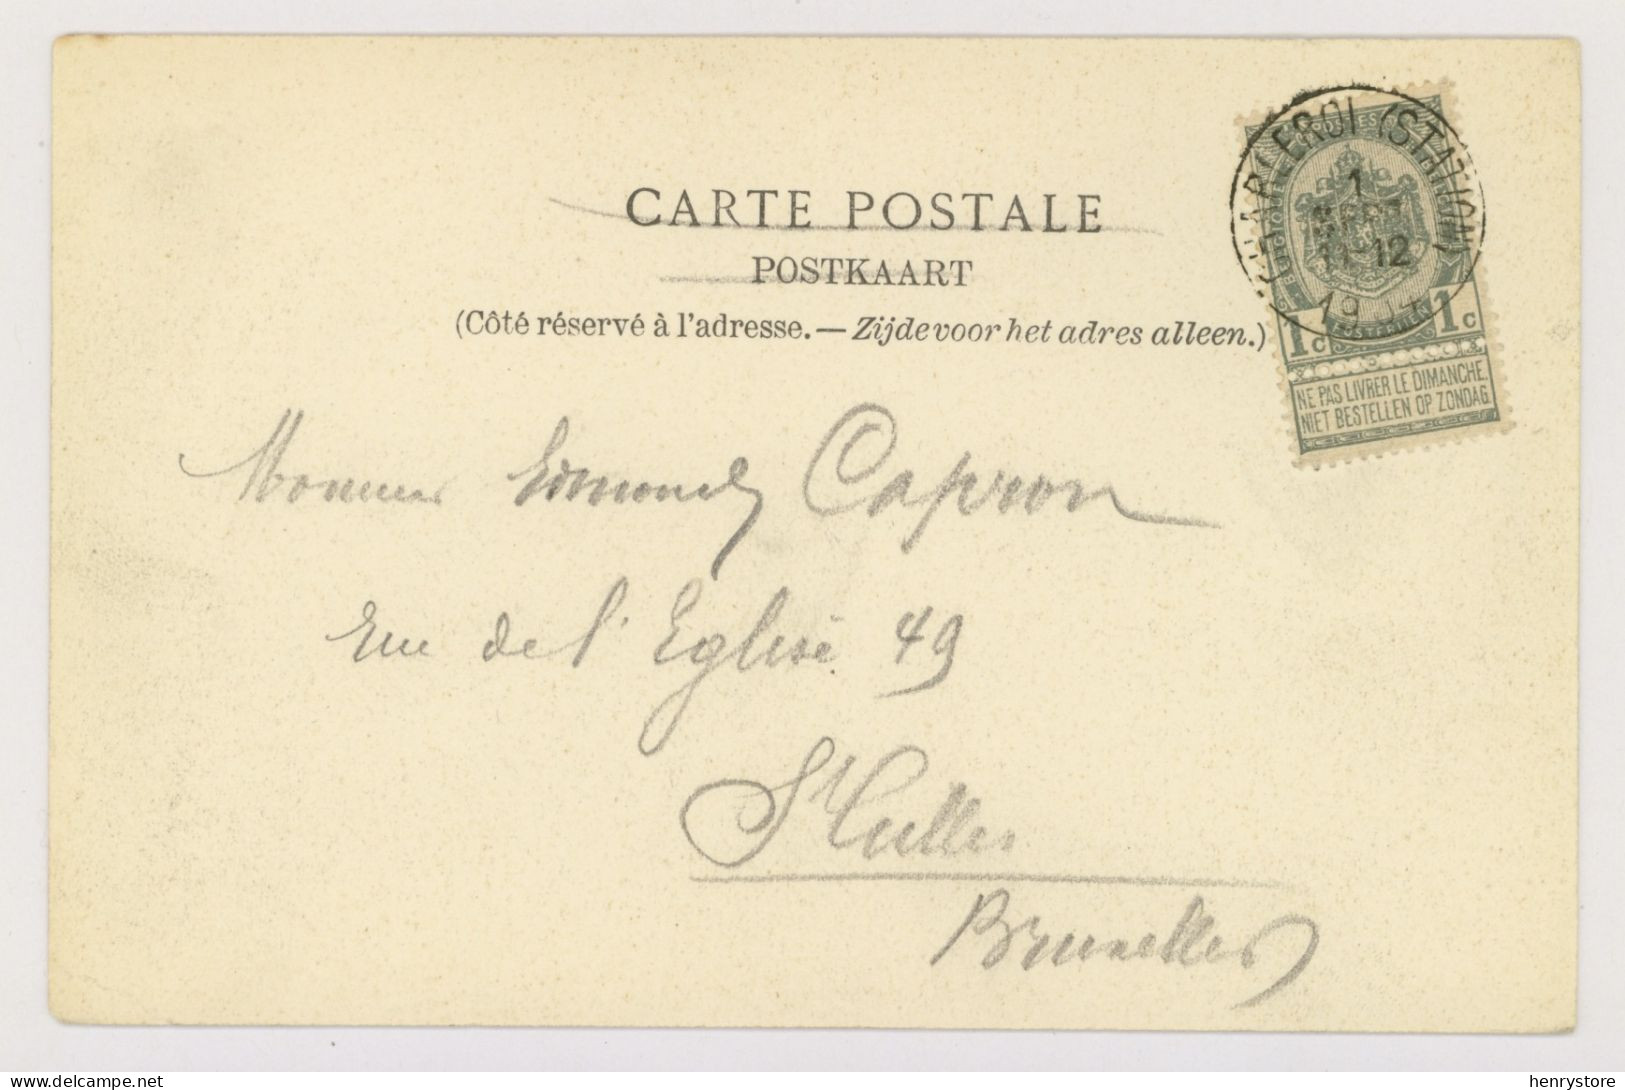 CARTE POSTALE
POSTKAART
(Côté réservé à l'adresse. — Zijde voor het adres alleen.)
CHARLEROI (STATION)
1
SEPT
11-12
19
POSTES
BELGIQUE
POSTERIJEN
1c 1c
NE PAS LIVRER LE DIMANCHE.
NIET BESTELLEN OP ZONDAG.
Monsieur Edmond Capron
Rue de l'Eglise 49
St Gilles
Bruxelles
henrystore